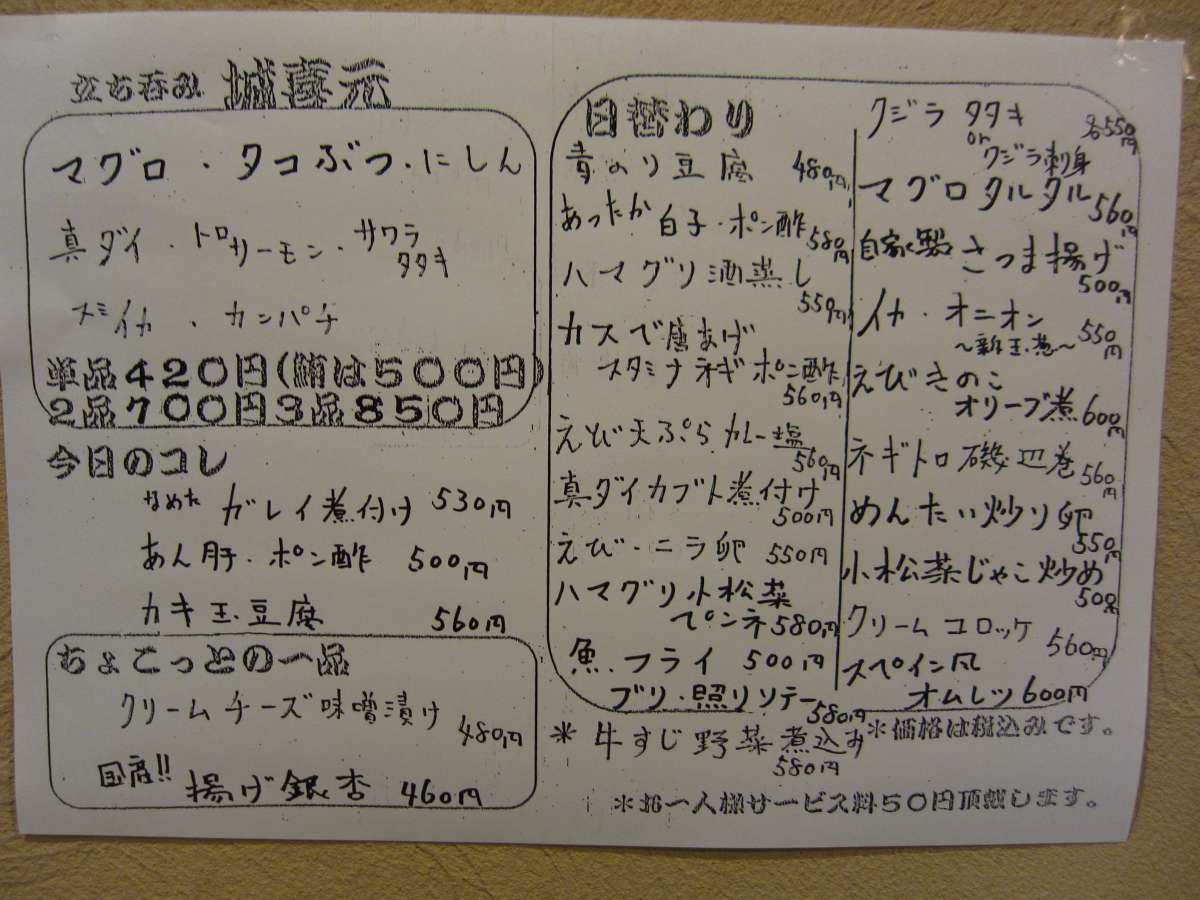 立ち呑み 城喜元
マグロ・タコぶつ・にしん
真ダイ・トロサーモン・サワラタタキ
スミイカ・カンパチ
単品420円(鮪は500円)
2品700円3品850円
今日のコレ
なめた ガレイ煮付け 530円
あん肝・ポン酢 500円
カキ玉豆腐 560円
ちょこっとの一品
クリームチーズ味噌漬け 480円
国産!! 揚げ銀杏 460円
日替わり
青のり豆腐 480円
あったか白子・ポン酢 580円
ハマグリ酒蒸し 550円
カスベ唐あげ
スタミナネギポン酢 560円
えび天ぷらカレー塩 560円
真ダイカブト煮付け 500円
えび・ニラ卵 550円
ハマグリ小松菜
ペンネ 580円
魚フライ 500円
ブリ・照りソテー 580円
*牛すじ野菜煮込み 580円
クジラ タタキ 各550円
or
クジラ刺身
マグロタルタル 560円
自家製さつま揚げ 500円
イカ・オニオン 550円
〜新玉葱〜
えびきのこ
オリーブ煮 600円
ネギトロ磯辺巻 560円
めんたい炒り卵 550円
小松菜じゃこ炒め 500
クリームコロッケ 560円
スペイン風
オムレツ 600円
*価格は税込みです。
*お一人様サービス料50円頂戴します。